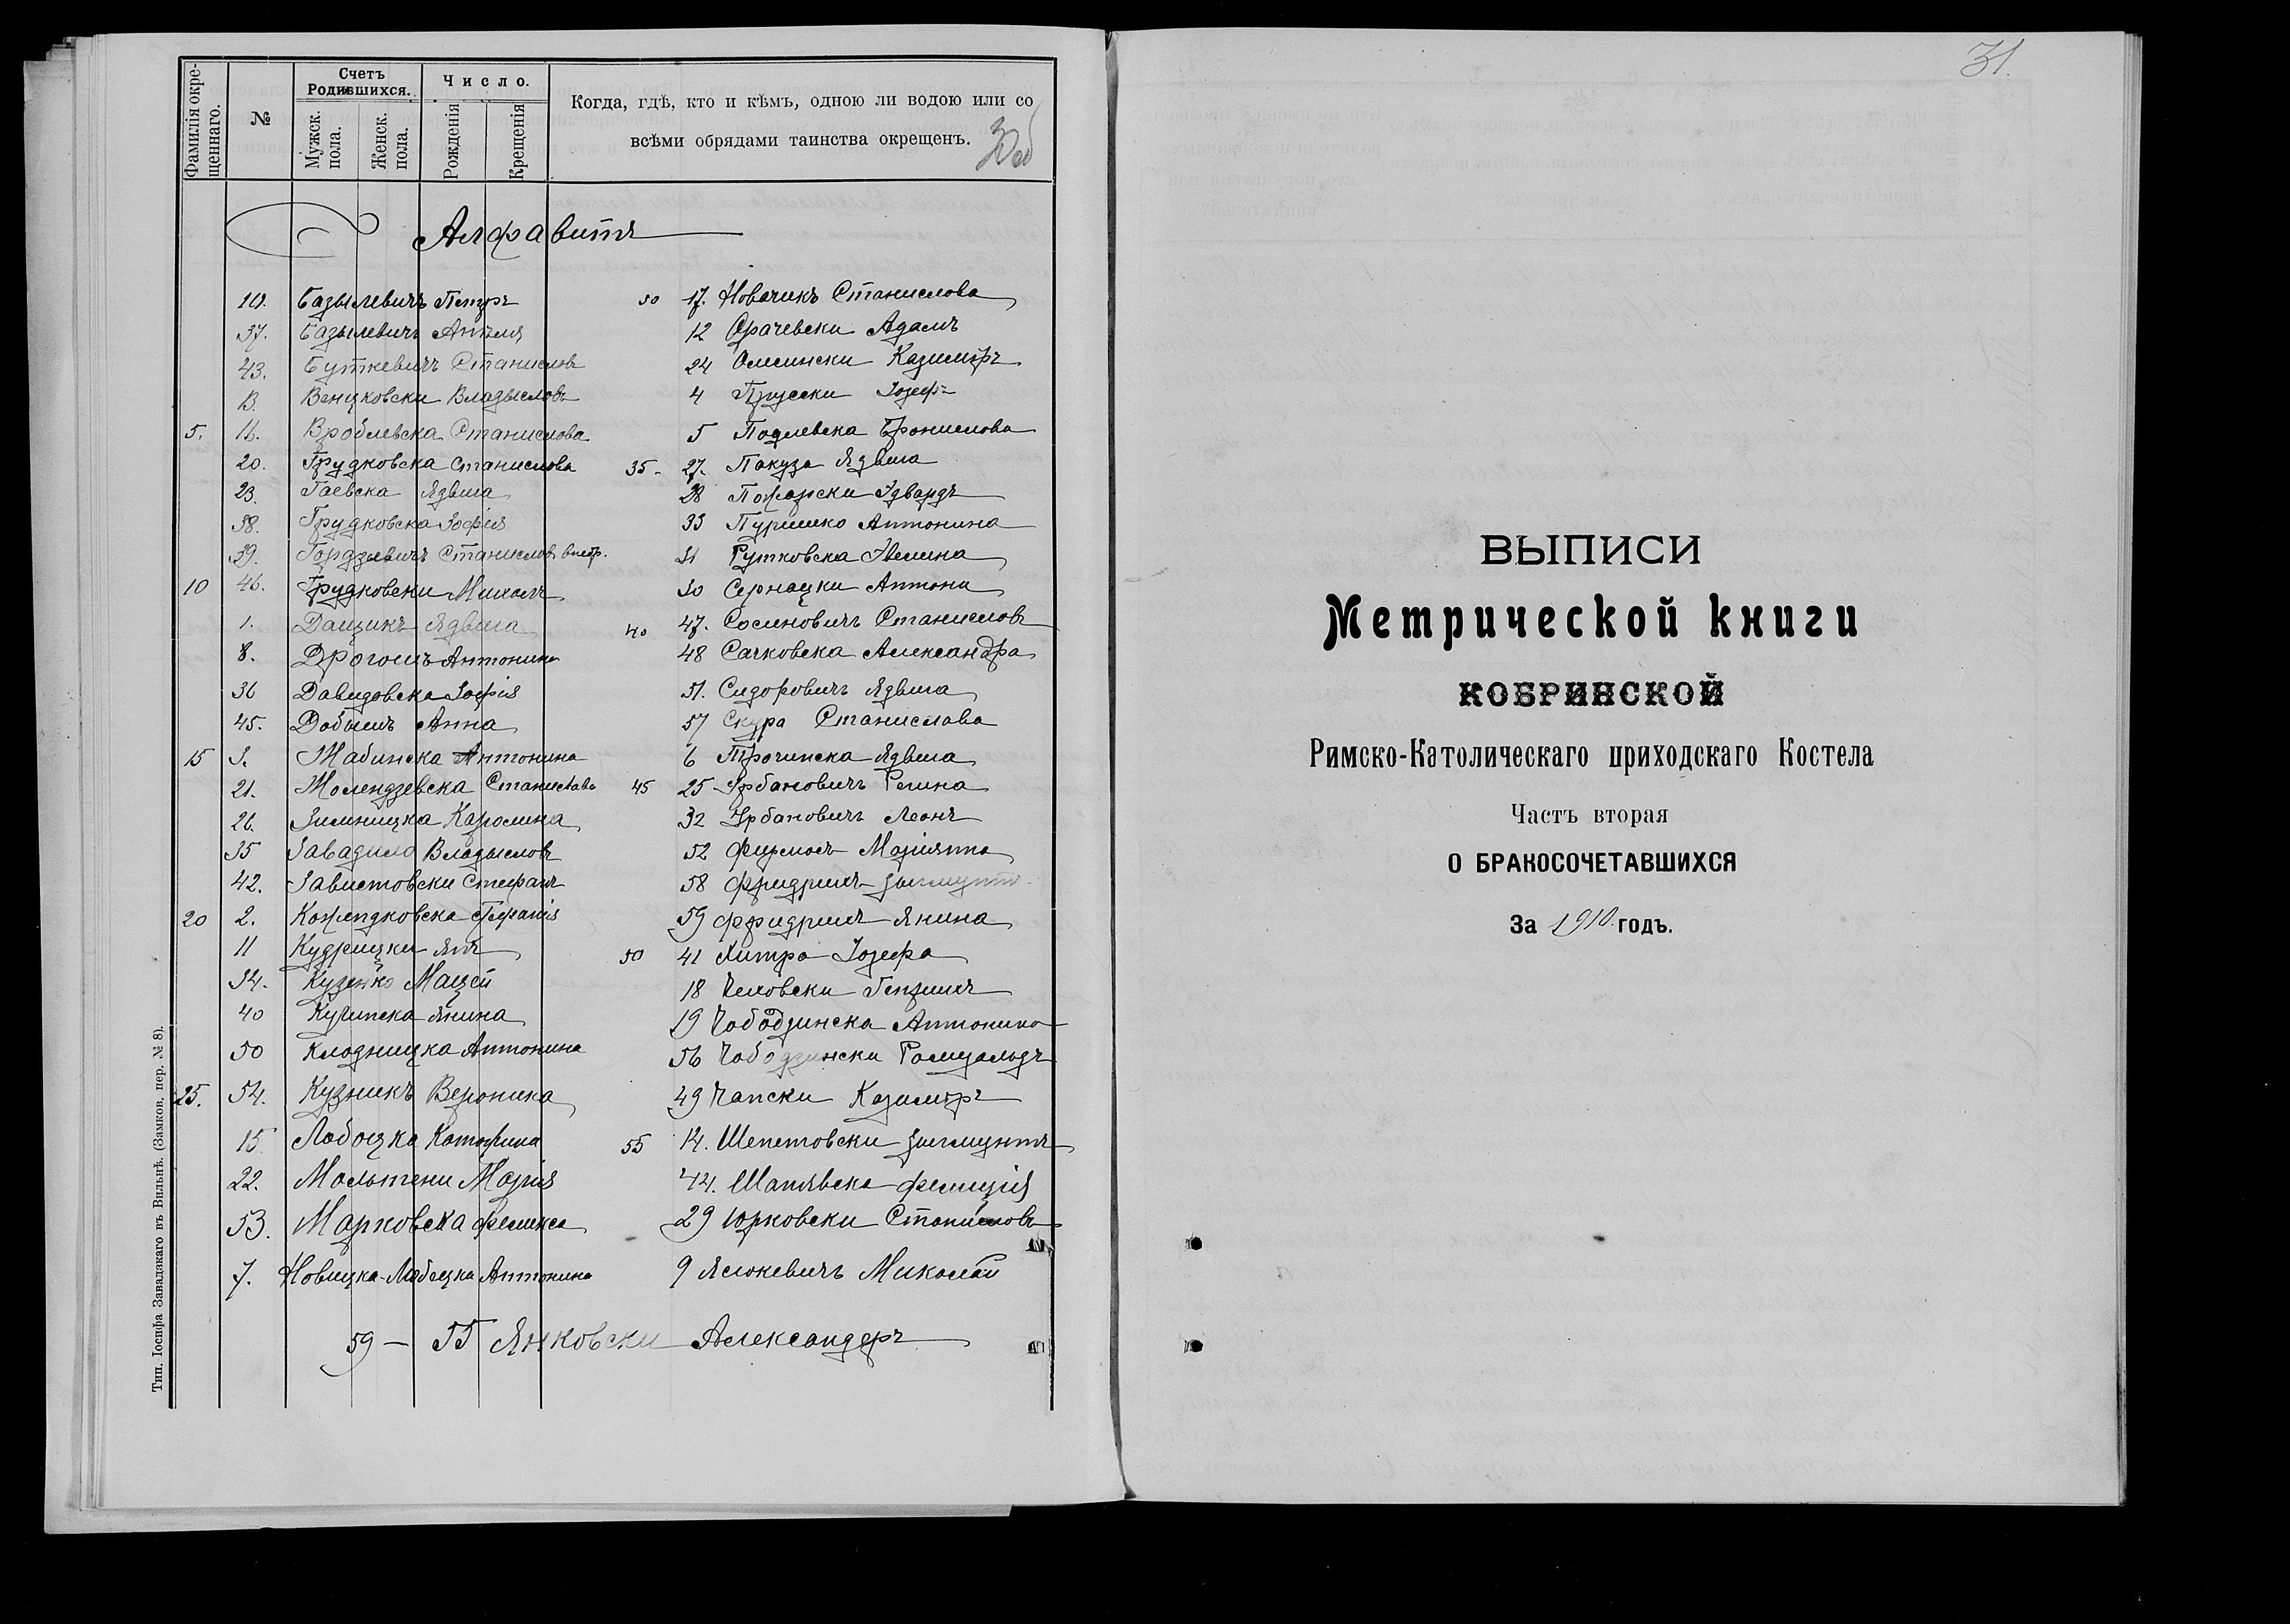 Фамилія окрещеннаго.
№
Счетъ Родившихся.
Мужск. пола.
Женск. пола.
Число.
Рожденія
Крещенія
Когда, гдѣ, кто и кѣмъ, одною ли водою или со
всѣми обрядами таинства окрещенъ.
30об
Алфавитъ
10. Базылевичъ Петръ
37. Базылевичъ Анѣля
43. Буткевичъ Станиславъ
13. Венцковски Владыславъ
5. 16. Вроблевска Станислава
20. Грудковска Станислава
23. Гаевска Ядвига
38. Грудковска Зофія
39. Гордзевичъ Станиславъ
10 46. Грудковски Михалъ
1. Дащикъ Ядвига
8. Дрогошъ Антонина
36 Давидовска Зофія
45. Добышъ Анна
15 3. Жабинска Антонина
21. Жолендзевска Станислава
26. Зимницка Каролина
35 Завадило Владыславъ
42. Завистовски Стефанъ
20 2. Стефанія
11 Кудрицки Янъ
34. Кузенко Мацей
40 Кучинска Янина
50 Клодницка Антонина
25. 54. Кузникъ Вероника
15 Лобоцка Катаржина
22. Мольтени Марія
53. Марковска Феликса
7. Новицка-Лабецка Антонина
30 17. Новачикъ Станислава
12 Орачевски Адамъ
24 Олесински Казимѣръ
4 Пруски Іозефъ
5 Подлевска Бронислава
35 27. Пакуза Ядвига
28 Пожарски Эдвардъ
33 Пуришко Антонина
31 Рутковска Эвелина
30 Сернацки Антони
40 47. Сосиновичъ Станиславъ
48 Сачковска Александра
51. Сидоровичъ Ядвига
57 Скура Станислава
6 Трочинска Ядвига
45 25 Урбановичъ Регина
32 Урбановичъ Леонъ
52 Фирмасъ Маріянна
58 Фридрихъ Зыгмунтъ
59 Фридрихъ Янина
50 41 Хитра Іозефа
18 Чеховски Генрихъ
19 Чабодзинска Антонина
56 Чабодзински Ромуальдъ
49 Чапски Казимѣръ
55 14. Шепетовски Зыгмунтъ
44. Шатявска Фелиція
29 Юрковски Станиславъ
9 Ясюкевичъ Миколай
59 – 55 Янковски Александеръ
Тип. Іосифа Завадзкаго въ Вильнѣ. (Замков. пер. № 8).
31.
ВЫПИСИ
Метрической книги
КОБРИНСКОЙ
Римско-Католическаго приходскаго Костела
Часть вторая
О БРАКОСОЧЕТАВШИХСЯ
За 1910 годъ.